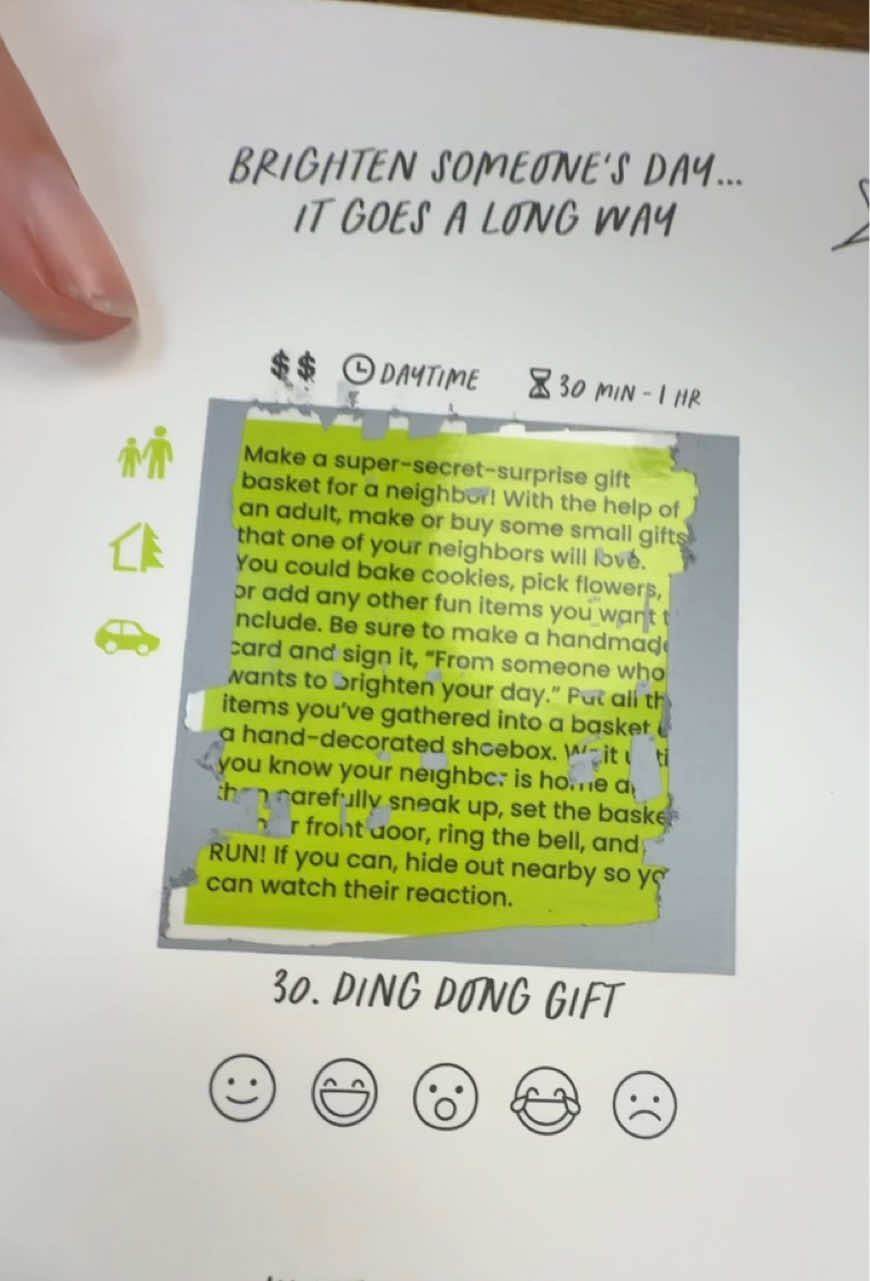 BRIGHTEN SOMEONE'S DAY...
IT GOES A LONG WAY
$$ DAYTIME 30 MIN - 1 HR
Make a super-secret-surprise gift
basket for a neighbor! With the help of
an adult, make or buy some small gifts
that one of your neighbors will love.
You could bake cookies, pick flowers,
or add any other fun items you want
include. Be sure to make a handmade
card and sign it, "From someone who
wants to brighten your day." Put all
items you've gathered into a basket
a hand-decorated shoebox. Wait
you know your neighbor is home
then carefully sneak up, set the basket
front door, ring the bell, and
RUN! If you can, hide out nearby so you
can watch their reaction.
30. DING DONG GIFT